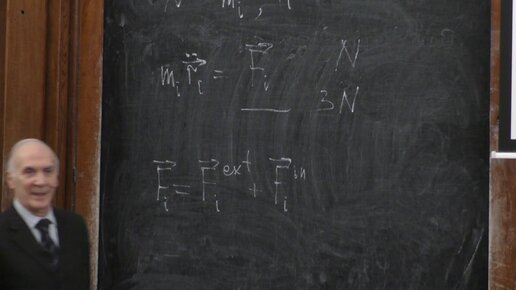 N m_i, r⃗
m_i r̈⃗_i = F⃗_i N
3N
F⃗_i = F⃗_i^ext + F⃗_i^in